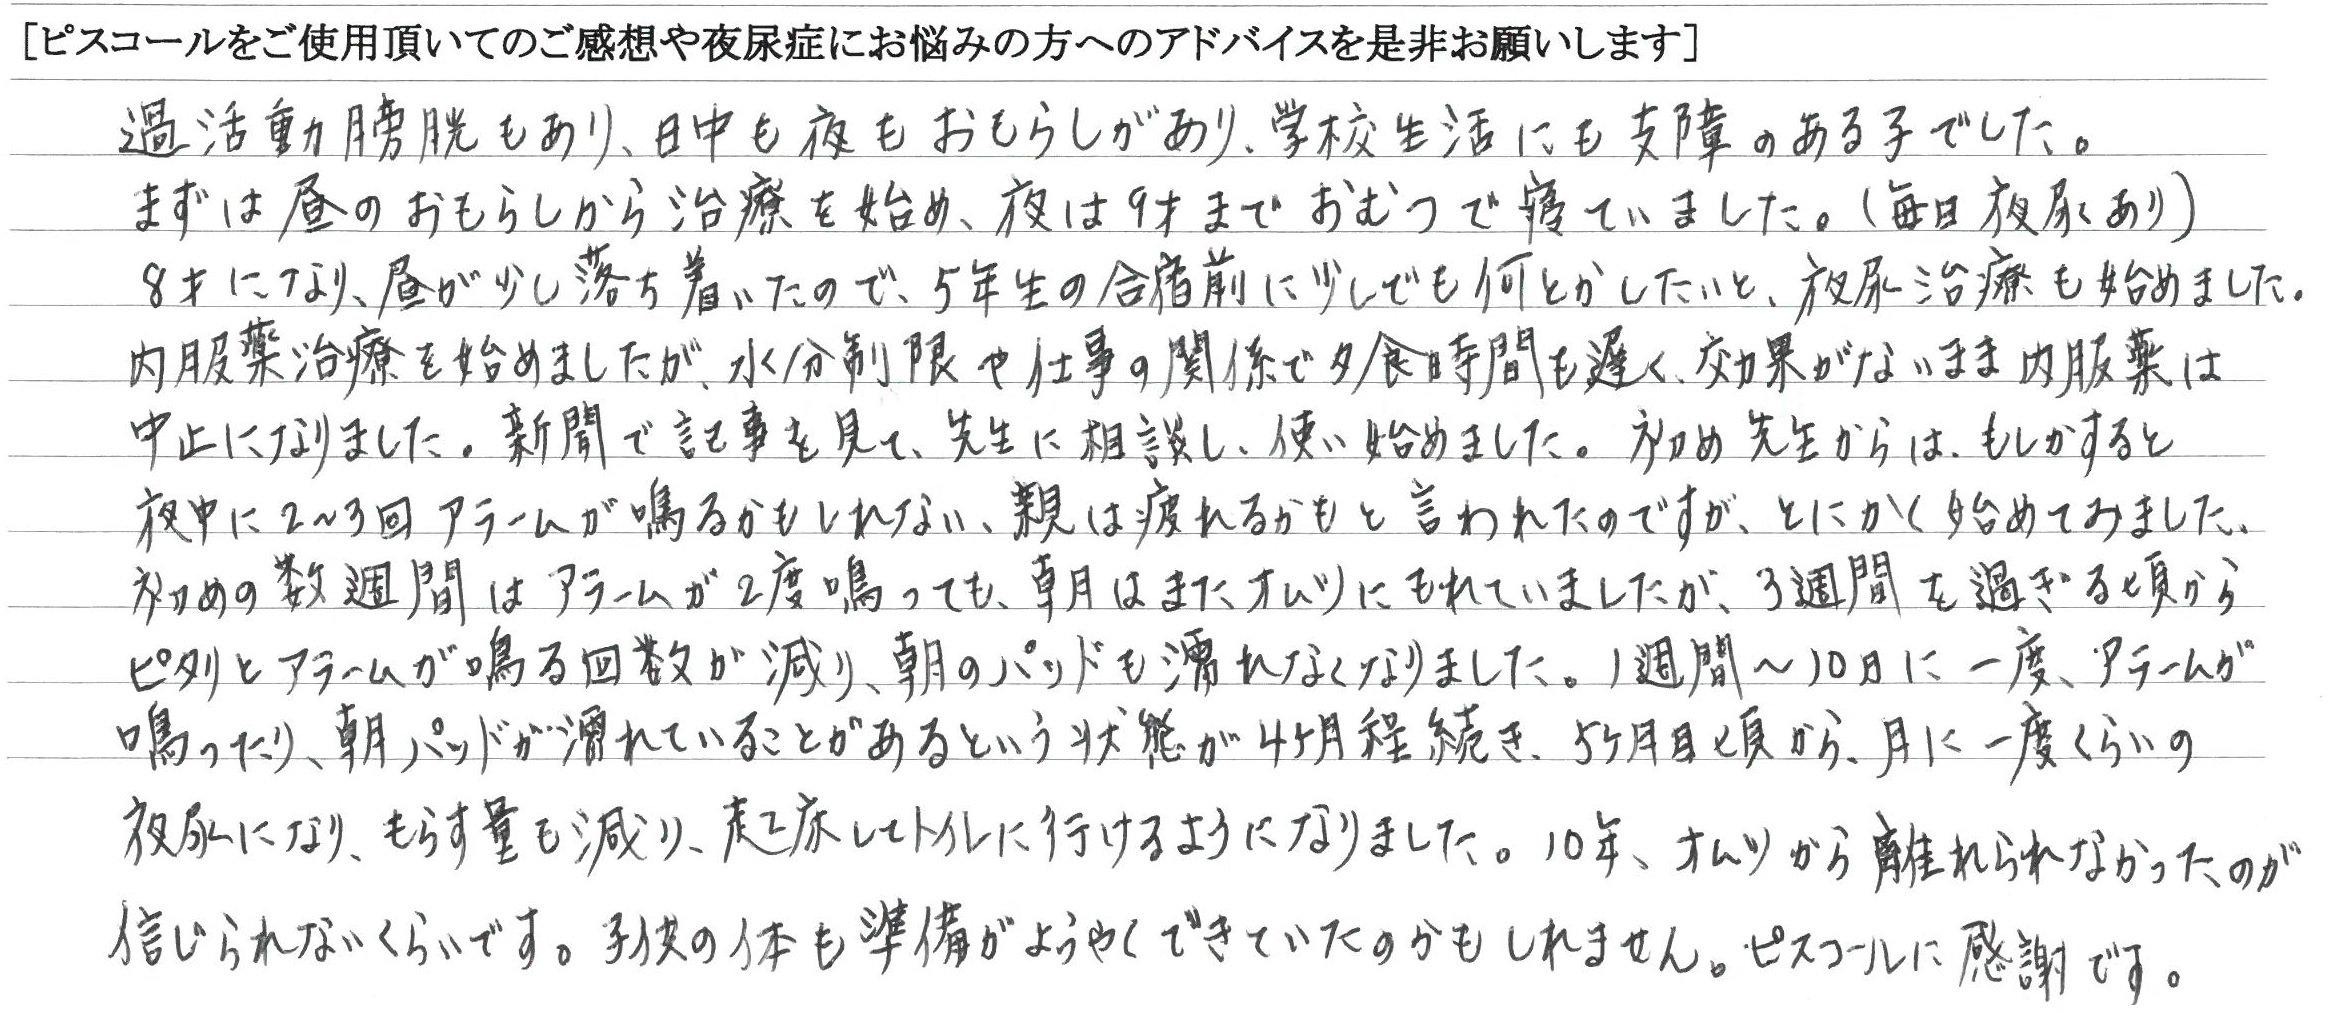 [ピスコールをご使用頂いてのご感想や夜尿症にお悩みの方へのアドバイスを是非お願いします]
過活動膀胱もあり、日中も夜もおもらしがあり、学校生活にも支障のある子でした。
まずは昼のおもらしから治療を始め、夜は9才までおむつで寝ていました。(毎日夜尿あり)
8才になり、昼が少し落ち着いたので、5年生の合宿前に少しでも何とかしたいと、夜尿治療も始めました。
内服薬治療を始めましたが、水分制限や仕事の関係で夕食時間も遅く、効果がないまま内服薬は
中止になりました。新聞で記事を見て、先生に相談し、使い始めました。初め先生からは、もしかすると
夜中に2~3回アラームが鳴るかもしれない、親は疲れるかもと言われたのですが、とにかく始めてみました、
初めの数週間はアラームが2度鳴っても、朝はまたオムツにもれていましたが、3週間を過ぎる頃から
ピタリとアラームが鳴る回数が減り、朝のパッドも濡れなくなりました。1週間～10日に一度、アラームが
鳴ったり、朝パッドが濡れていることがあるという状態が4ヶ月程続き、5ヶ月目頃から、月に一度くらいの
夜尿になり、もらす量も減り、起床してトイレに行けるようになりました。10年、オムツから離れられなかったのが
信じられないくらいです。子供の体も準備がようやくできていたのかもしれません。ピスコールに感謝です。